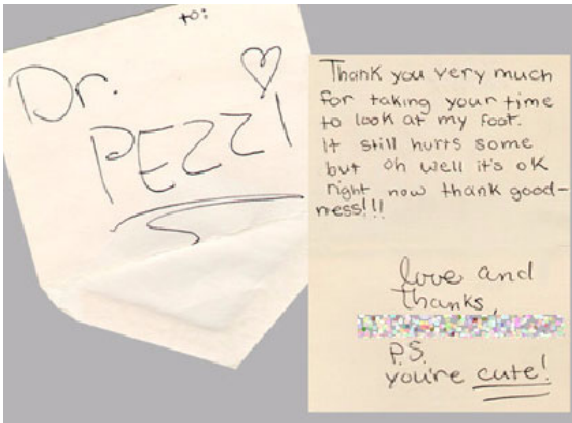 to:
Dr.
PEZZI
Thank you very much
for taking your time
to look at my foot.
It still hurts some
but oh well it's ok
right now thank good-
ness!!!
love and
thanks,
P.S.
you're cute!